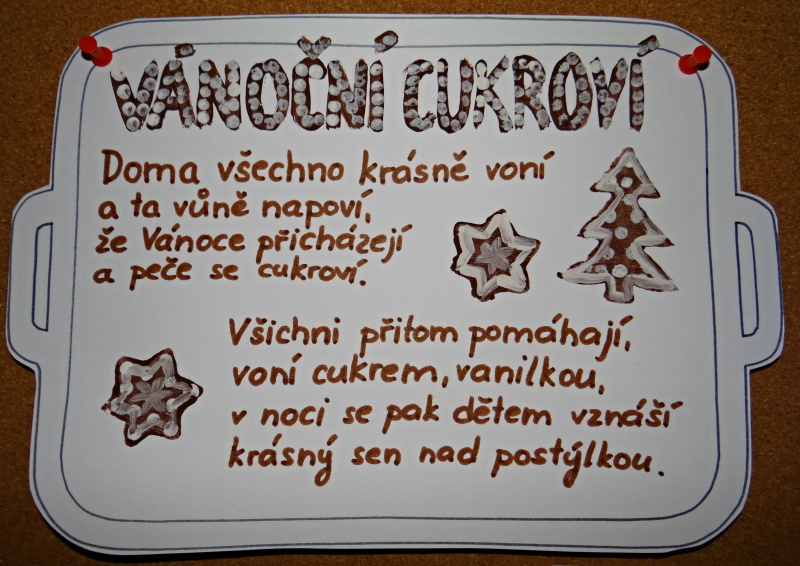 VÁNOČNÍ CUKROVÍ
Doma všechno krásně voní
a ta vůně napoví,
že Vánoce přicházejí
a peče se cukroví.
Všichni přitom pomáhají,
voní cukrem, vanilkou,
v noci se pak dětem vznáší
krásný sen nad postýlkou.